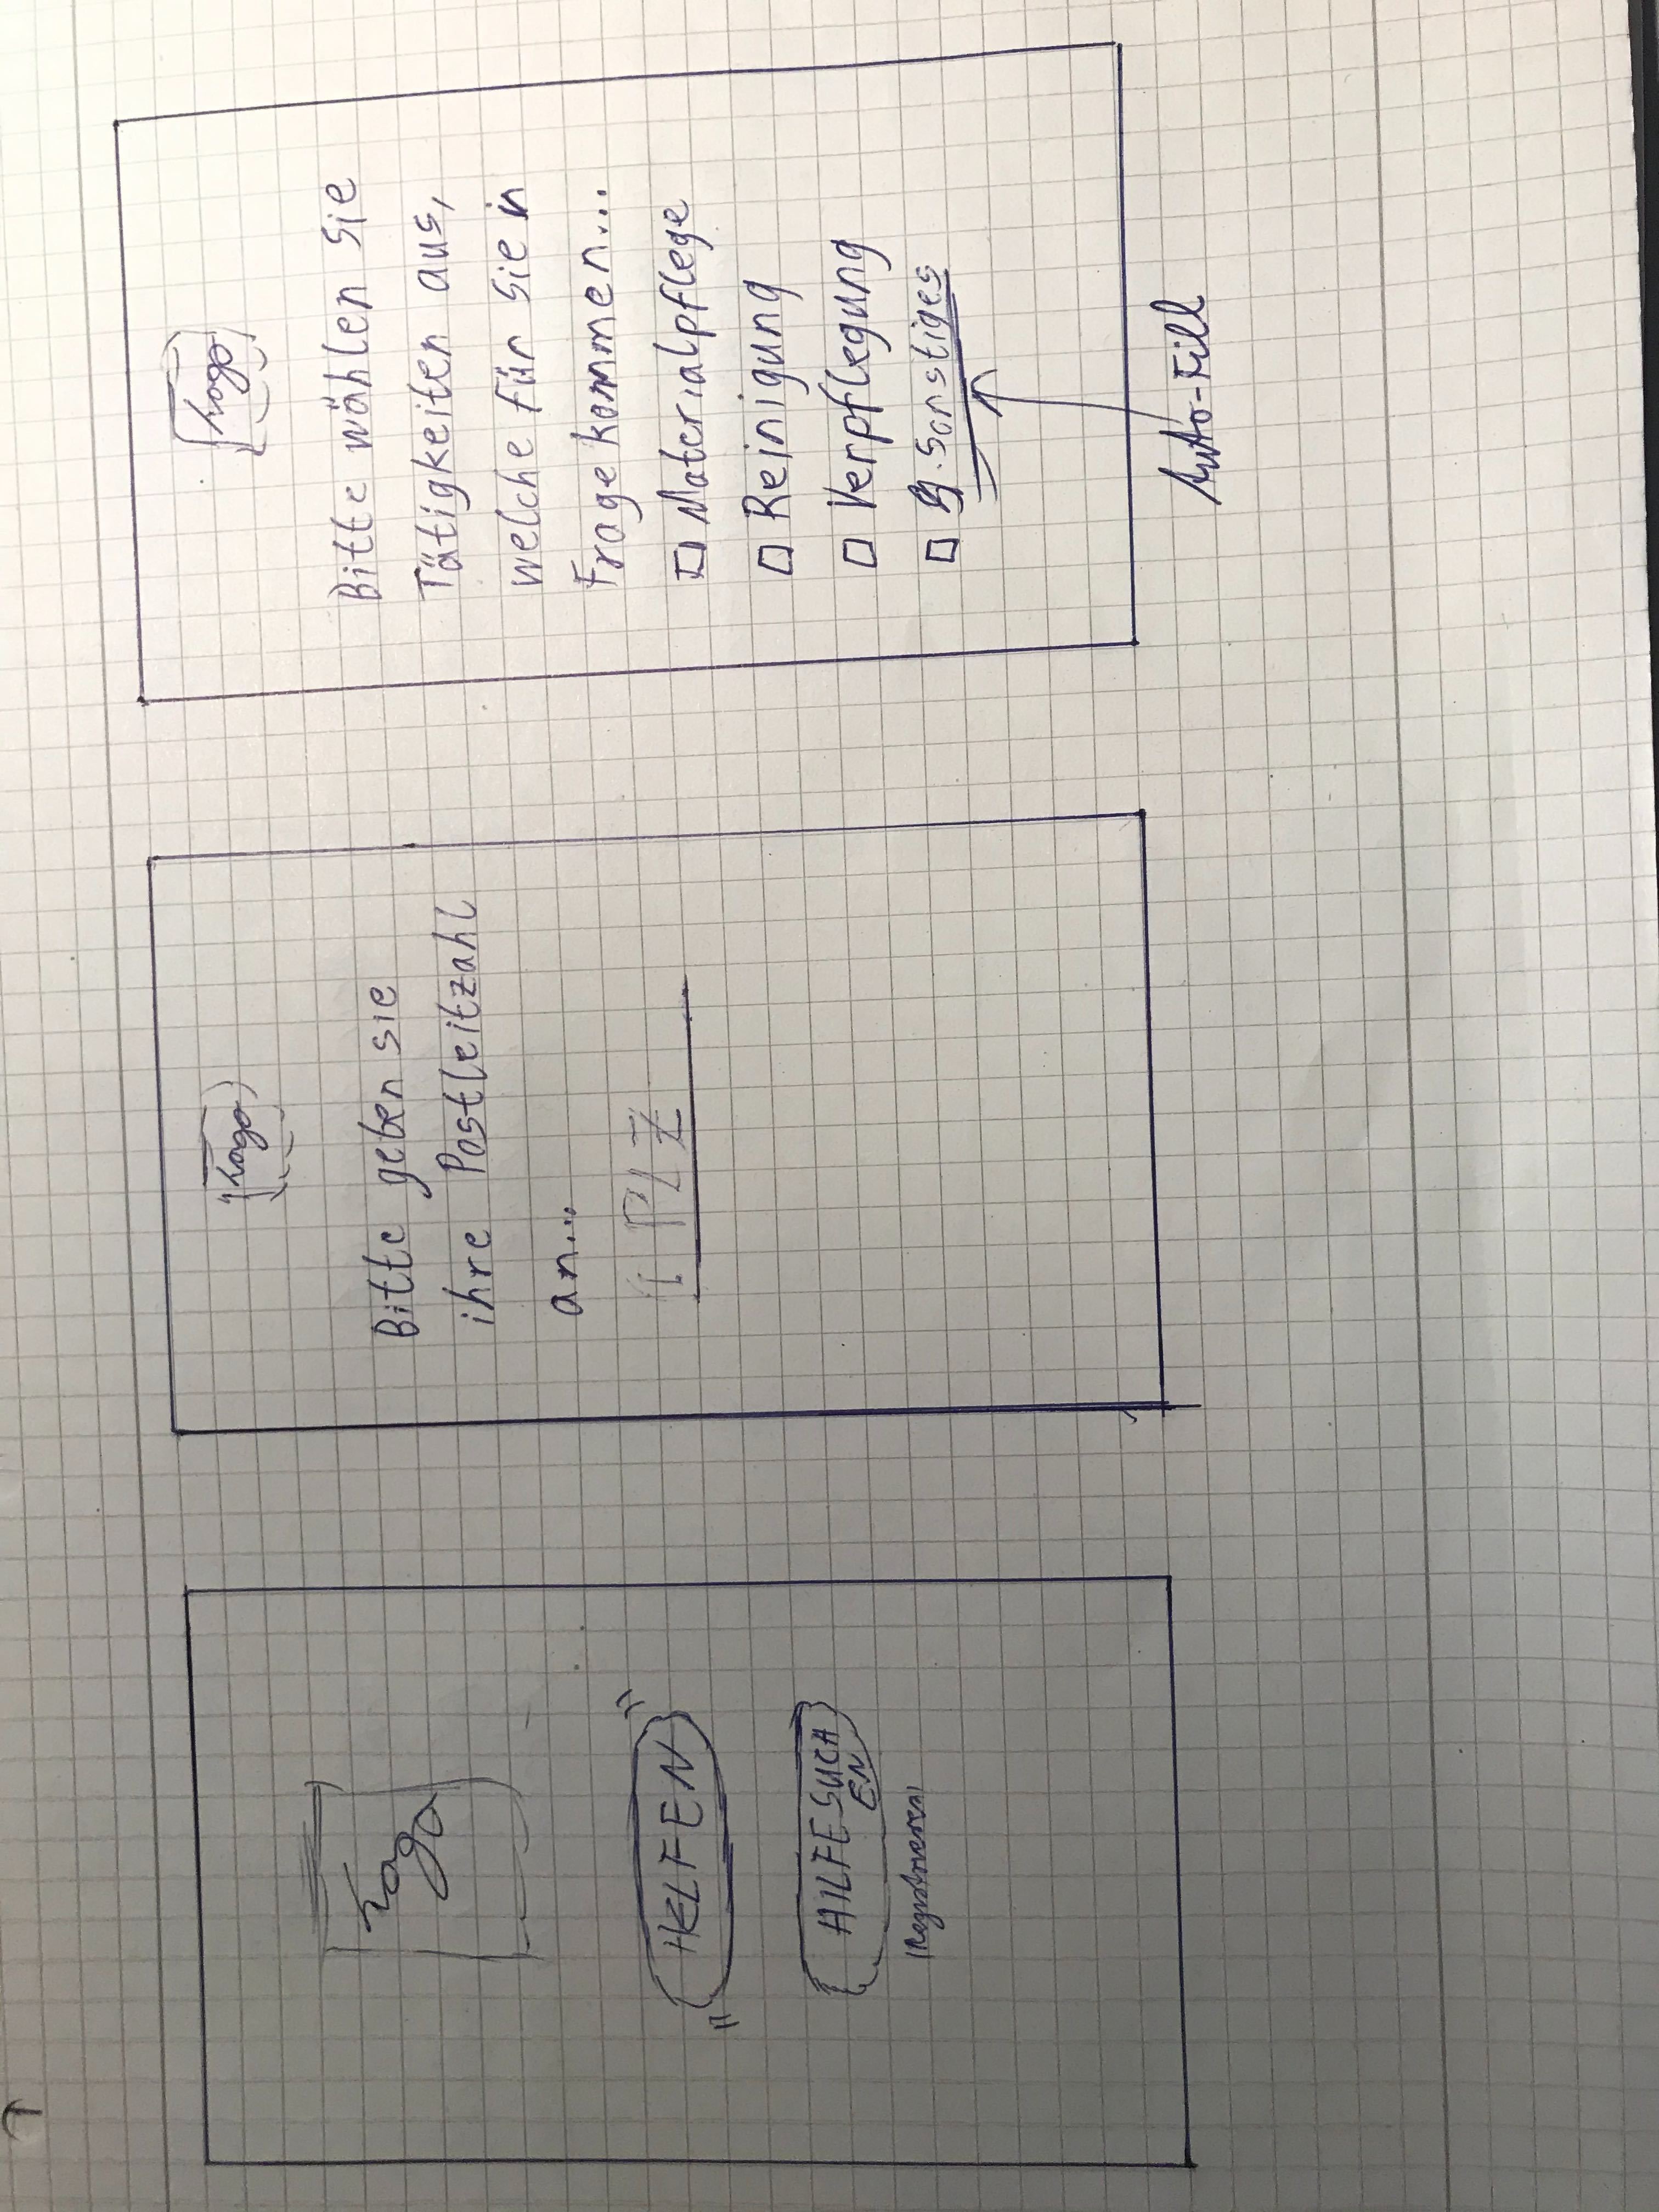 Logo
HELFEN
HILFE SUCH
EN
Registrieren
Logo
Bitte geben sie
ihre Postleitzahl
an...
PLZ
Logo
Bitte wählen Sie
Tätigkeiten aus,
welche für Sie in
Frage kommen...
Materialpflege
Reinigung
Verpflegung
Sonstiges
Auto-Fill